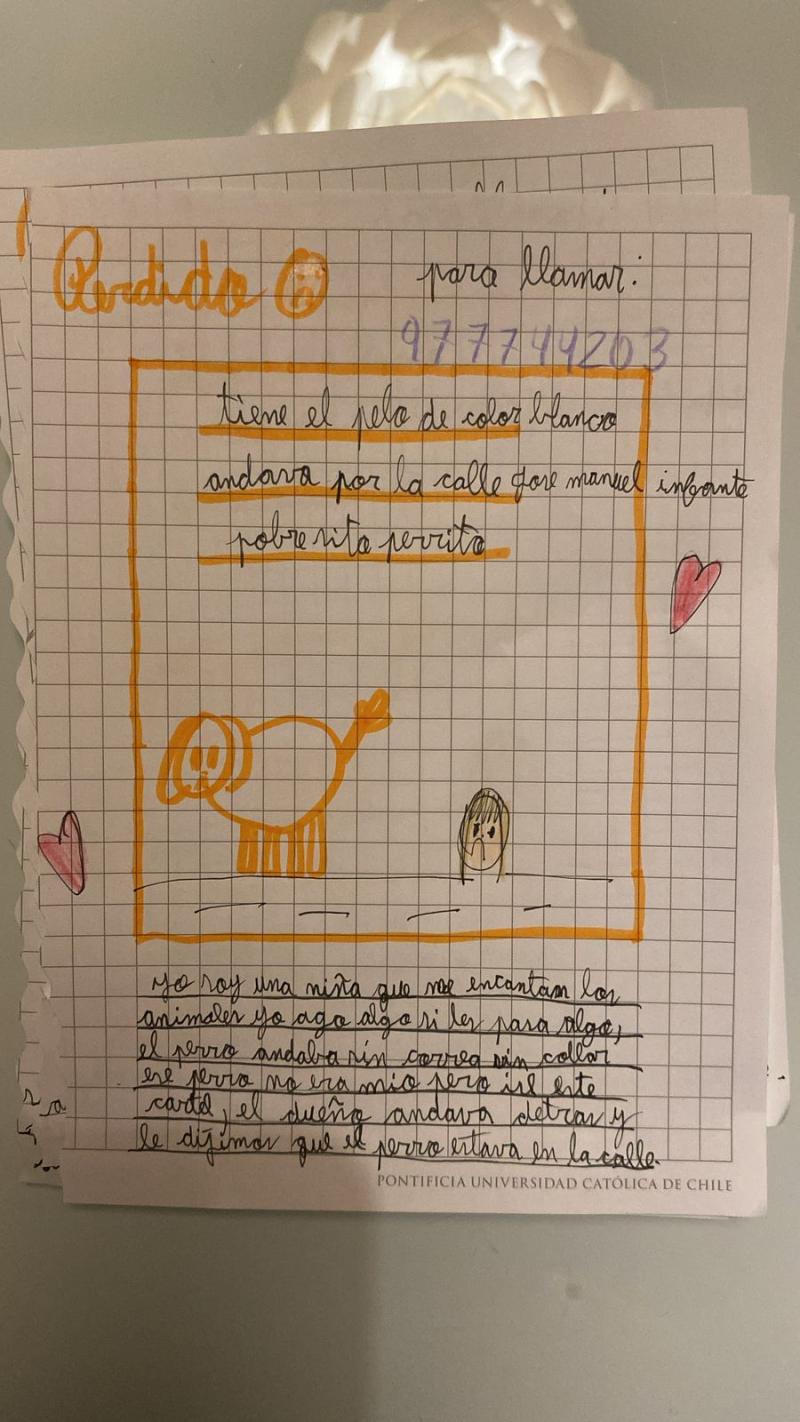 Perdido
para llamar:
977744203
tiene el pelo de color blanco
andava por la calle Jose manuel infante
pobresito perrito
yo soy una niña que me encantan los
animales yo ago algo si les pasa algo,
el perro andaba sin correa sin collar
ese perro no era mio pero ise este
cartel, el dueño andava detras y
le dijimos que el perro estava en la calle.
PONTIFICIA UNIVERSIDAD CATÓLICA DE CHILE